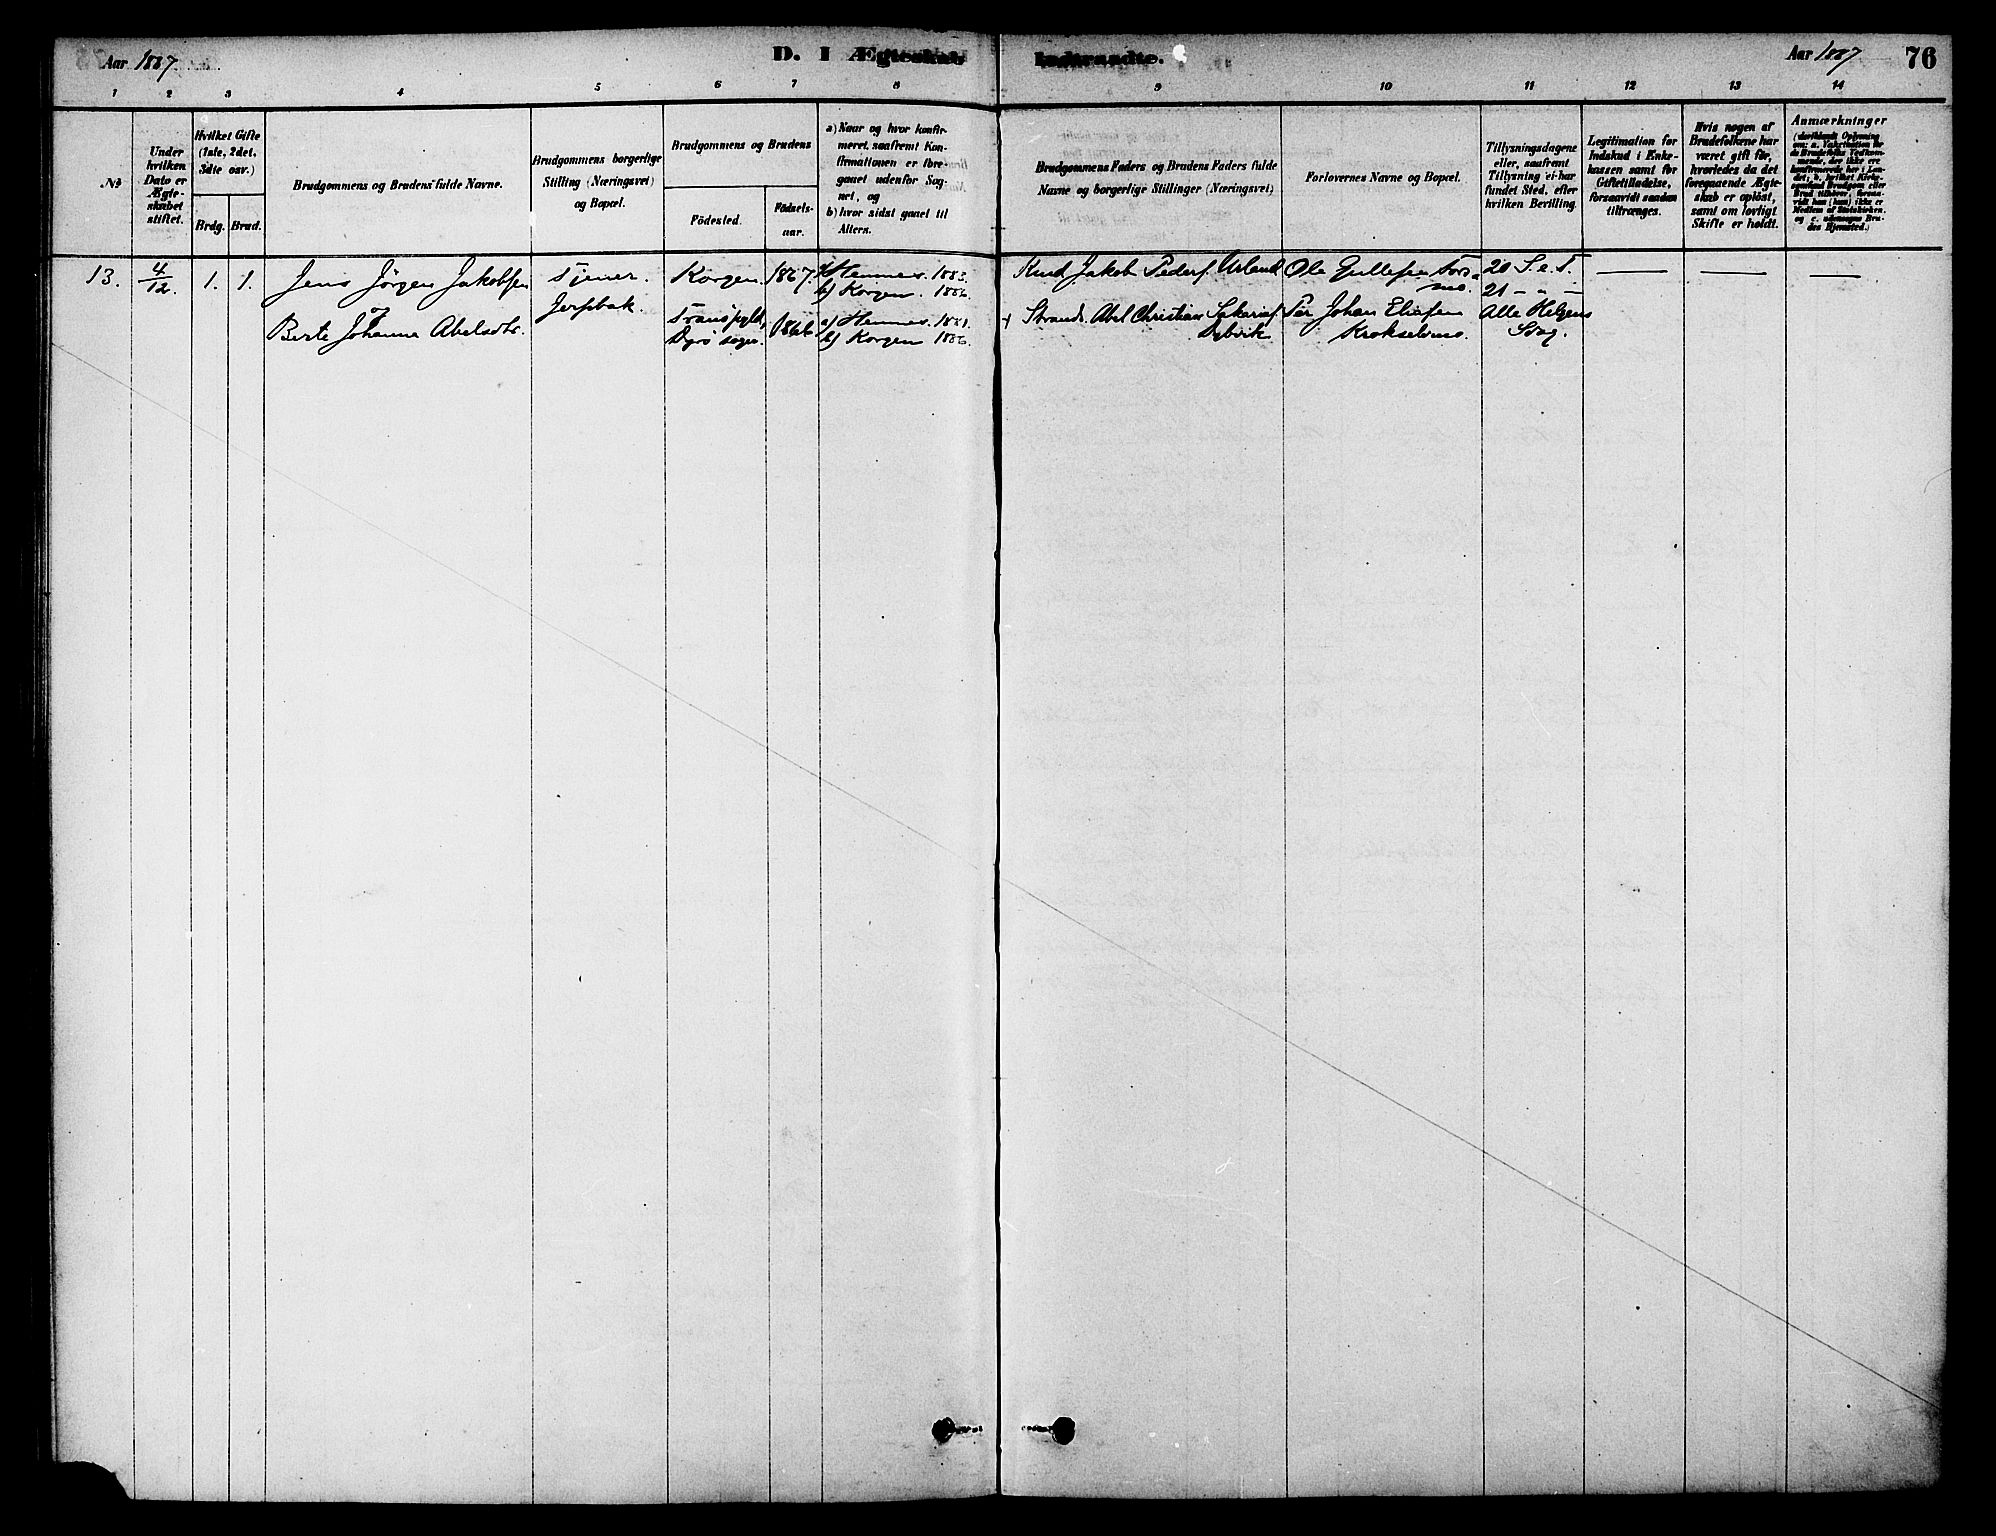 Aar 1887.
D. I Ægteskab
Indtraadte.
Aar 1887
76
1 2 3 4 5 6 7 8 9 10 11 12 13 14
№
Under hvilken Dato er Ægteskabet stiftet.
Hvilket Gifte (1ste, 2det, 3dte osv.)
Brdg. Brud.
Brudgommens og Brudens fulde Navne.
Brudgommens borgerlige Stilling (Næringsvei) og Bopæl.
Brudgommens og Brudens
Födested.
Födsels-aar.
a) Naar og hvor konfirmeret, saafremt Konfirmationen er foregaaet udenfor Sognet, og
b) hvor sidst gaaet til Alters.
Brudgommens Faders og Brudens Faders fulde Navne og borgerlige Stillinger (Næringsvei)
Forlovernes Navne og Bopæl.
Tillysningsdagene eller, saafremt Tillysning ei har fundet Sted, efter hvilken Bevilling.
Legitimation for Indskud i Enkekassen samt for Giftetilladelse, forsaavidt saadan tiltrænges.
Hvis nogen af Brudefolkene har været gift før, hvorledes da det foregaaende Ægteskab er oplöst, samt om lovligt Skifte er holdt.
Anmærkninger
13. 4/12. 1. 1. Jens Jörgen Jakobsen Tjener. Korgen. 1867. a/ Hemnes. 1883. Knud Jakob Peders. Ole Gullesen 20 S. e. T. — — —
Berte Johanne Abelsdtr. b/ Korgen. 1886. 21 — " —
Dyrø sogn. 1866 a/ Hemnes. 1881. Abel Christian Per Johan Eliasen Alle Helgens
b/ Korgen 1886. Krokselvmo.